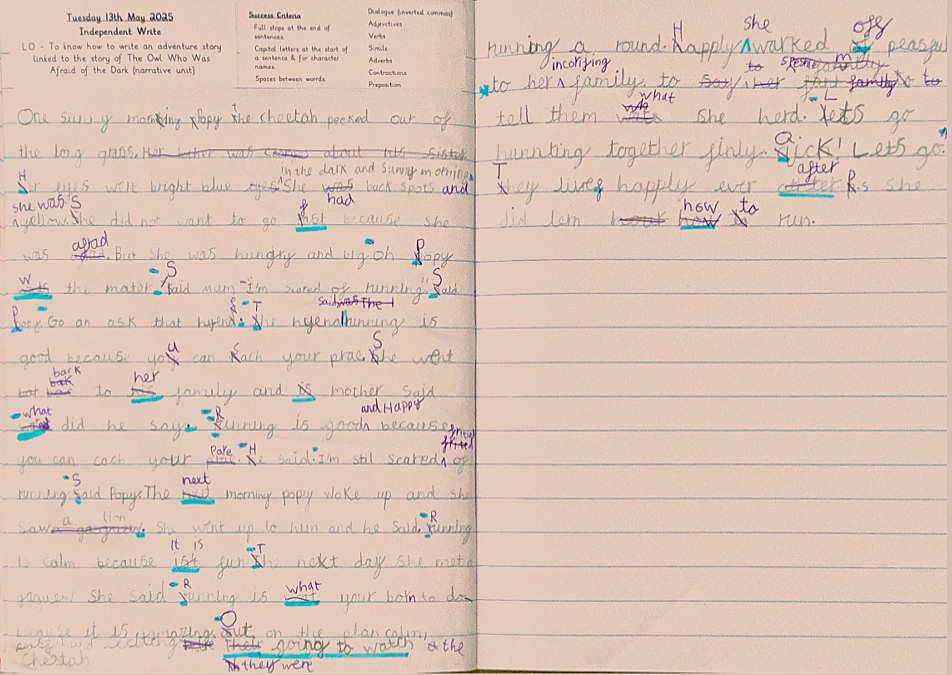 Tuesday 13th May 2025
Independent Write
LO - To know how to write an adventure story
linked to the story of The Owl Who Was
Afraid of the Dark (narrative unit)
Success Criteria
Full stops at the end of
sentences.
Capital letters at the start of
a sentence & for character
names.
Spaces between words
Dialogue (inverted commas)
Adjectives
Verbs
Simile
Adverbs
Contractions
Preposition
One sunny morning popy the cheetah peeked out of
the long grass. Her was about his sister
in the dark and sunny morning
Her eyes wert bright blue eyes. She had back spots and
yellow. she was She did not want to go fast because she
was afrad. But she was hungry and big oh Popy
W the mater. Said mum "I'm scared of running" Said
Go an ask that hyena. The hyena said running is
good because you can each your prae. She went
back to her family and is mother said
what did he say. Running is good and Happy because
you can cach your He said. I'm stil scared of
running Said Popy. The next morning popy woke up and she
saw a lion. She went up to him and he said. Running
is calm because it is fun. The next day she met a
she said Running is what your born to do
it is amazing. Out on the plan calm,
their going to watch the
Cheetah they were
running a round. Happy she warked off peasful
to her incorijing family to
tell them what she herd. Lets go
hunting together finly. Qick! Lets go.
They lives happly ever after As she
did lern how to run.